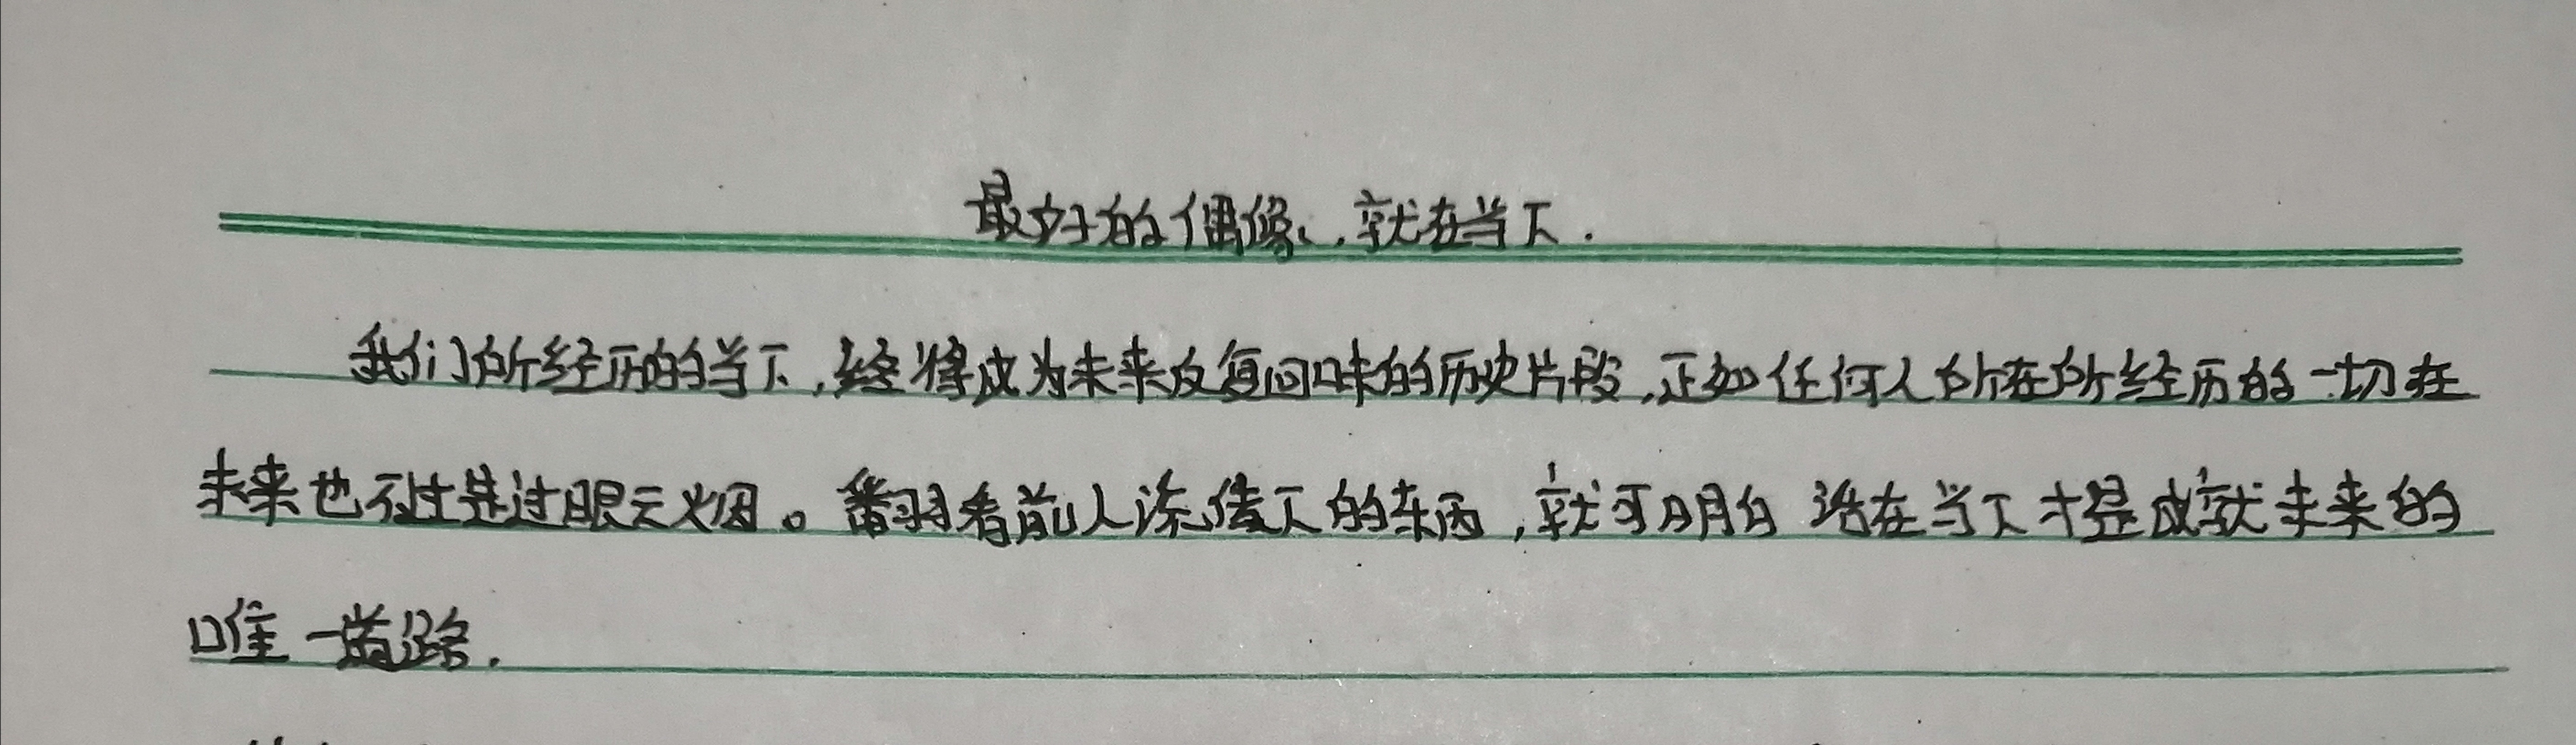 最好的偶像,就在当下.
我们所经历的当下,终将成为未来反复回味的历史片段,正如任何人所在所经历的一切在
未来也不过是过眼云烟。翻看前人流传下的东西,就可明白 活在当下才是成就未来的
唯一道路.